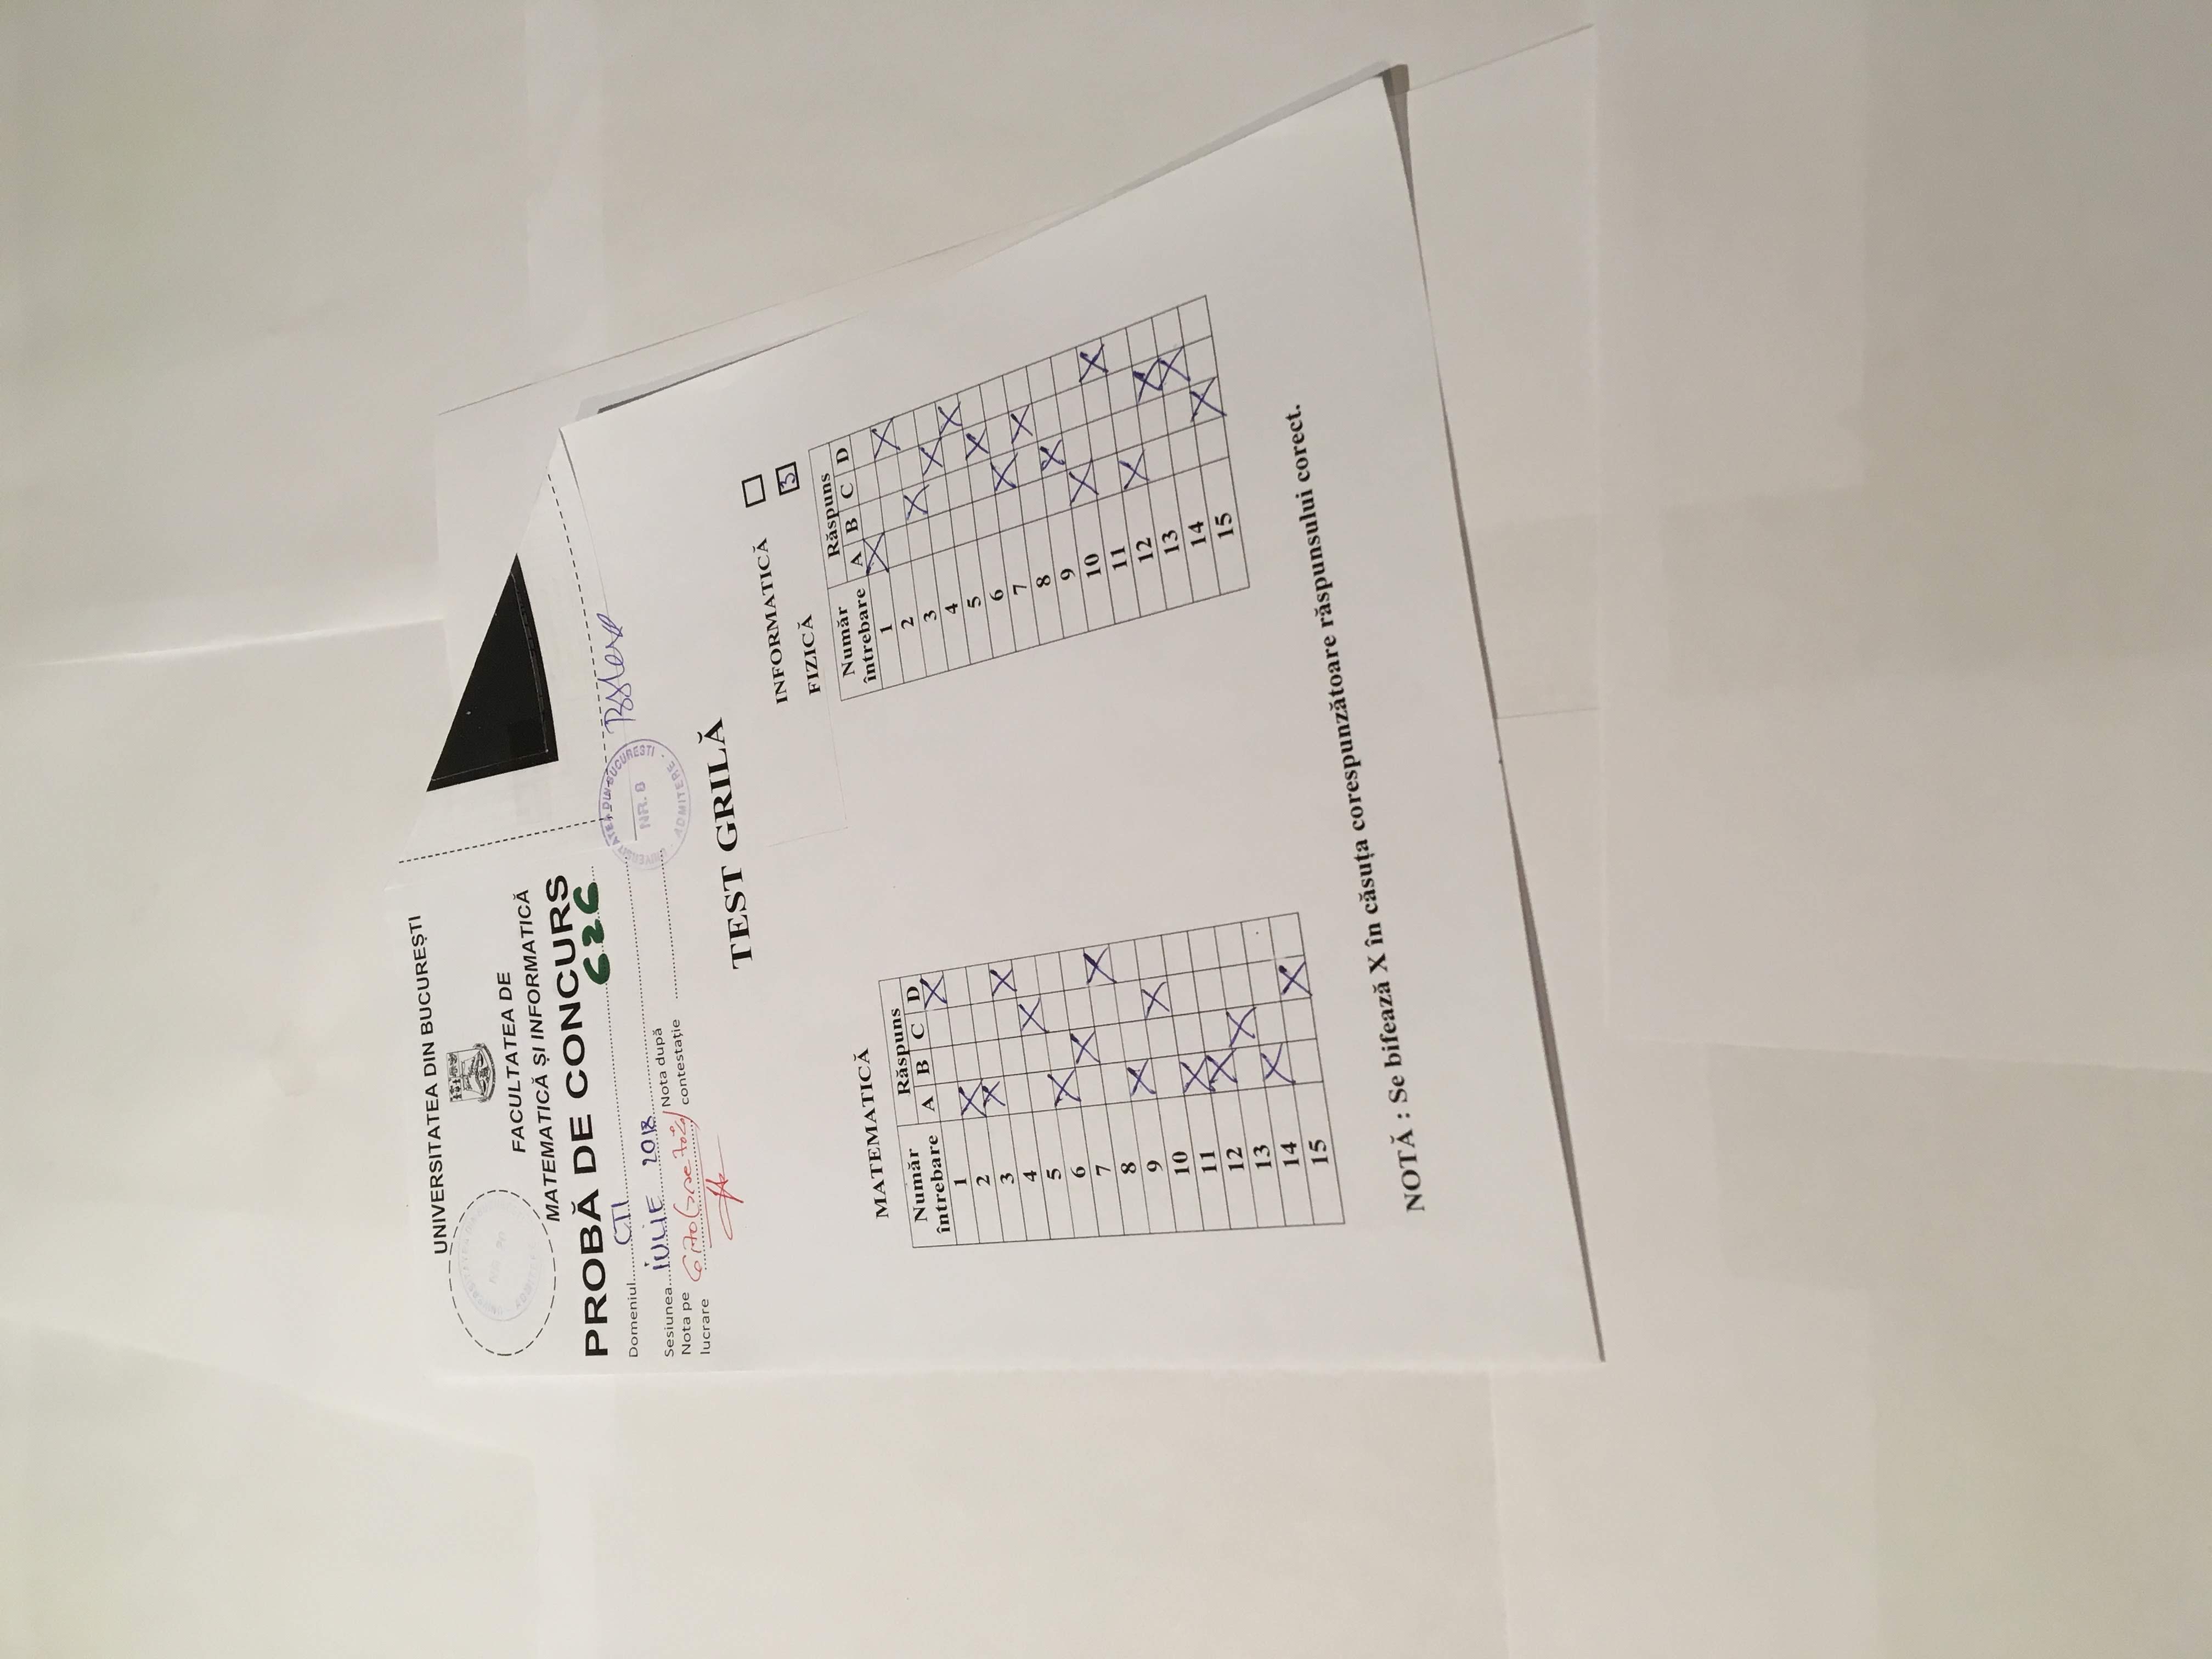 UNIVERSITATEA DIN BUCUREȘTI
FACULTATEA DE
MATEMATICĂ ȘI INFORMATICĂ
PROBĂ DE CONCURS
626
Domeniul CTI
Sesiunea IULIE 2018
Nota pe lucrare 6,70
Nota după contestație
UNIVERSITATEA DIN BUCUREȘTI
NR. 8
ADMITERE
TEST GRILĂ
INFORMATICĂ
FIZICĂ 3
MATEMATICĂ
Număr întrebare Răspuns
A B C D
1 X
2 X
3 X
4 X
5 X
6 X
7 X
8 X
9 X
10 X
11 X
12 X
13 X
14 X
15 X
Număr întrebare Răspuns
A B C D
1 X
2 X
3 X
4 X
5 X
6 X
7 X
8 X
9 X
10 X
11 X
12 X
13 X
14 X
15 X
NOTĂ : Se bifează X în căsuța corespunzătoare răspunsului corect.